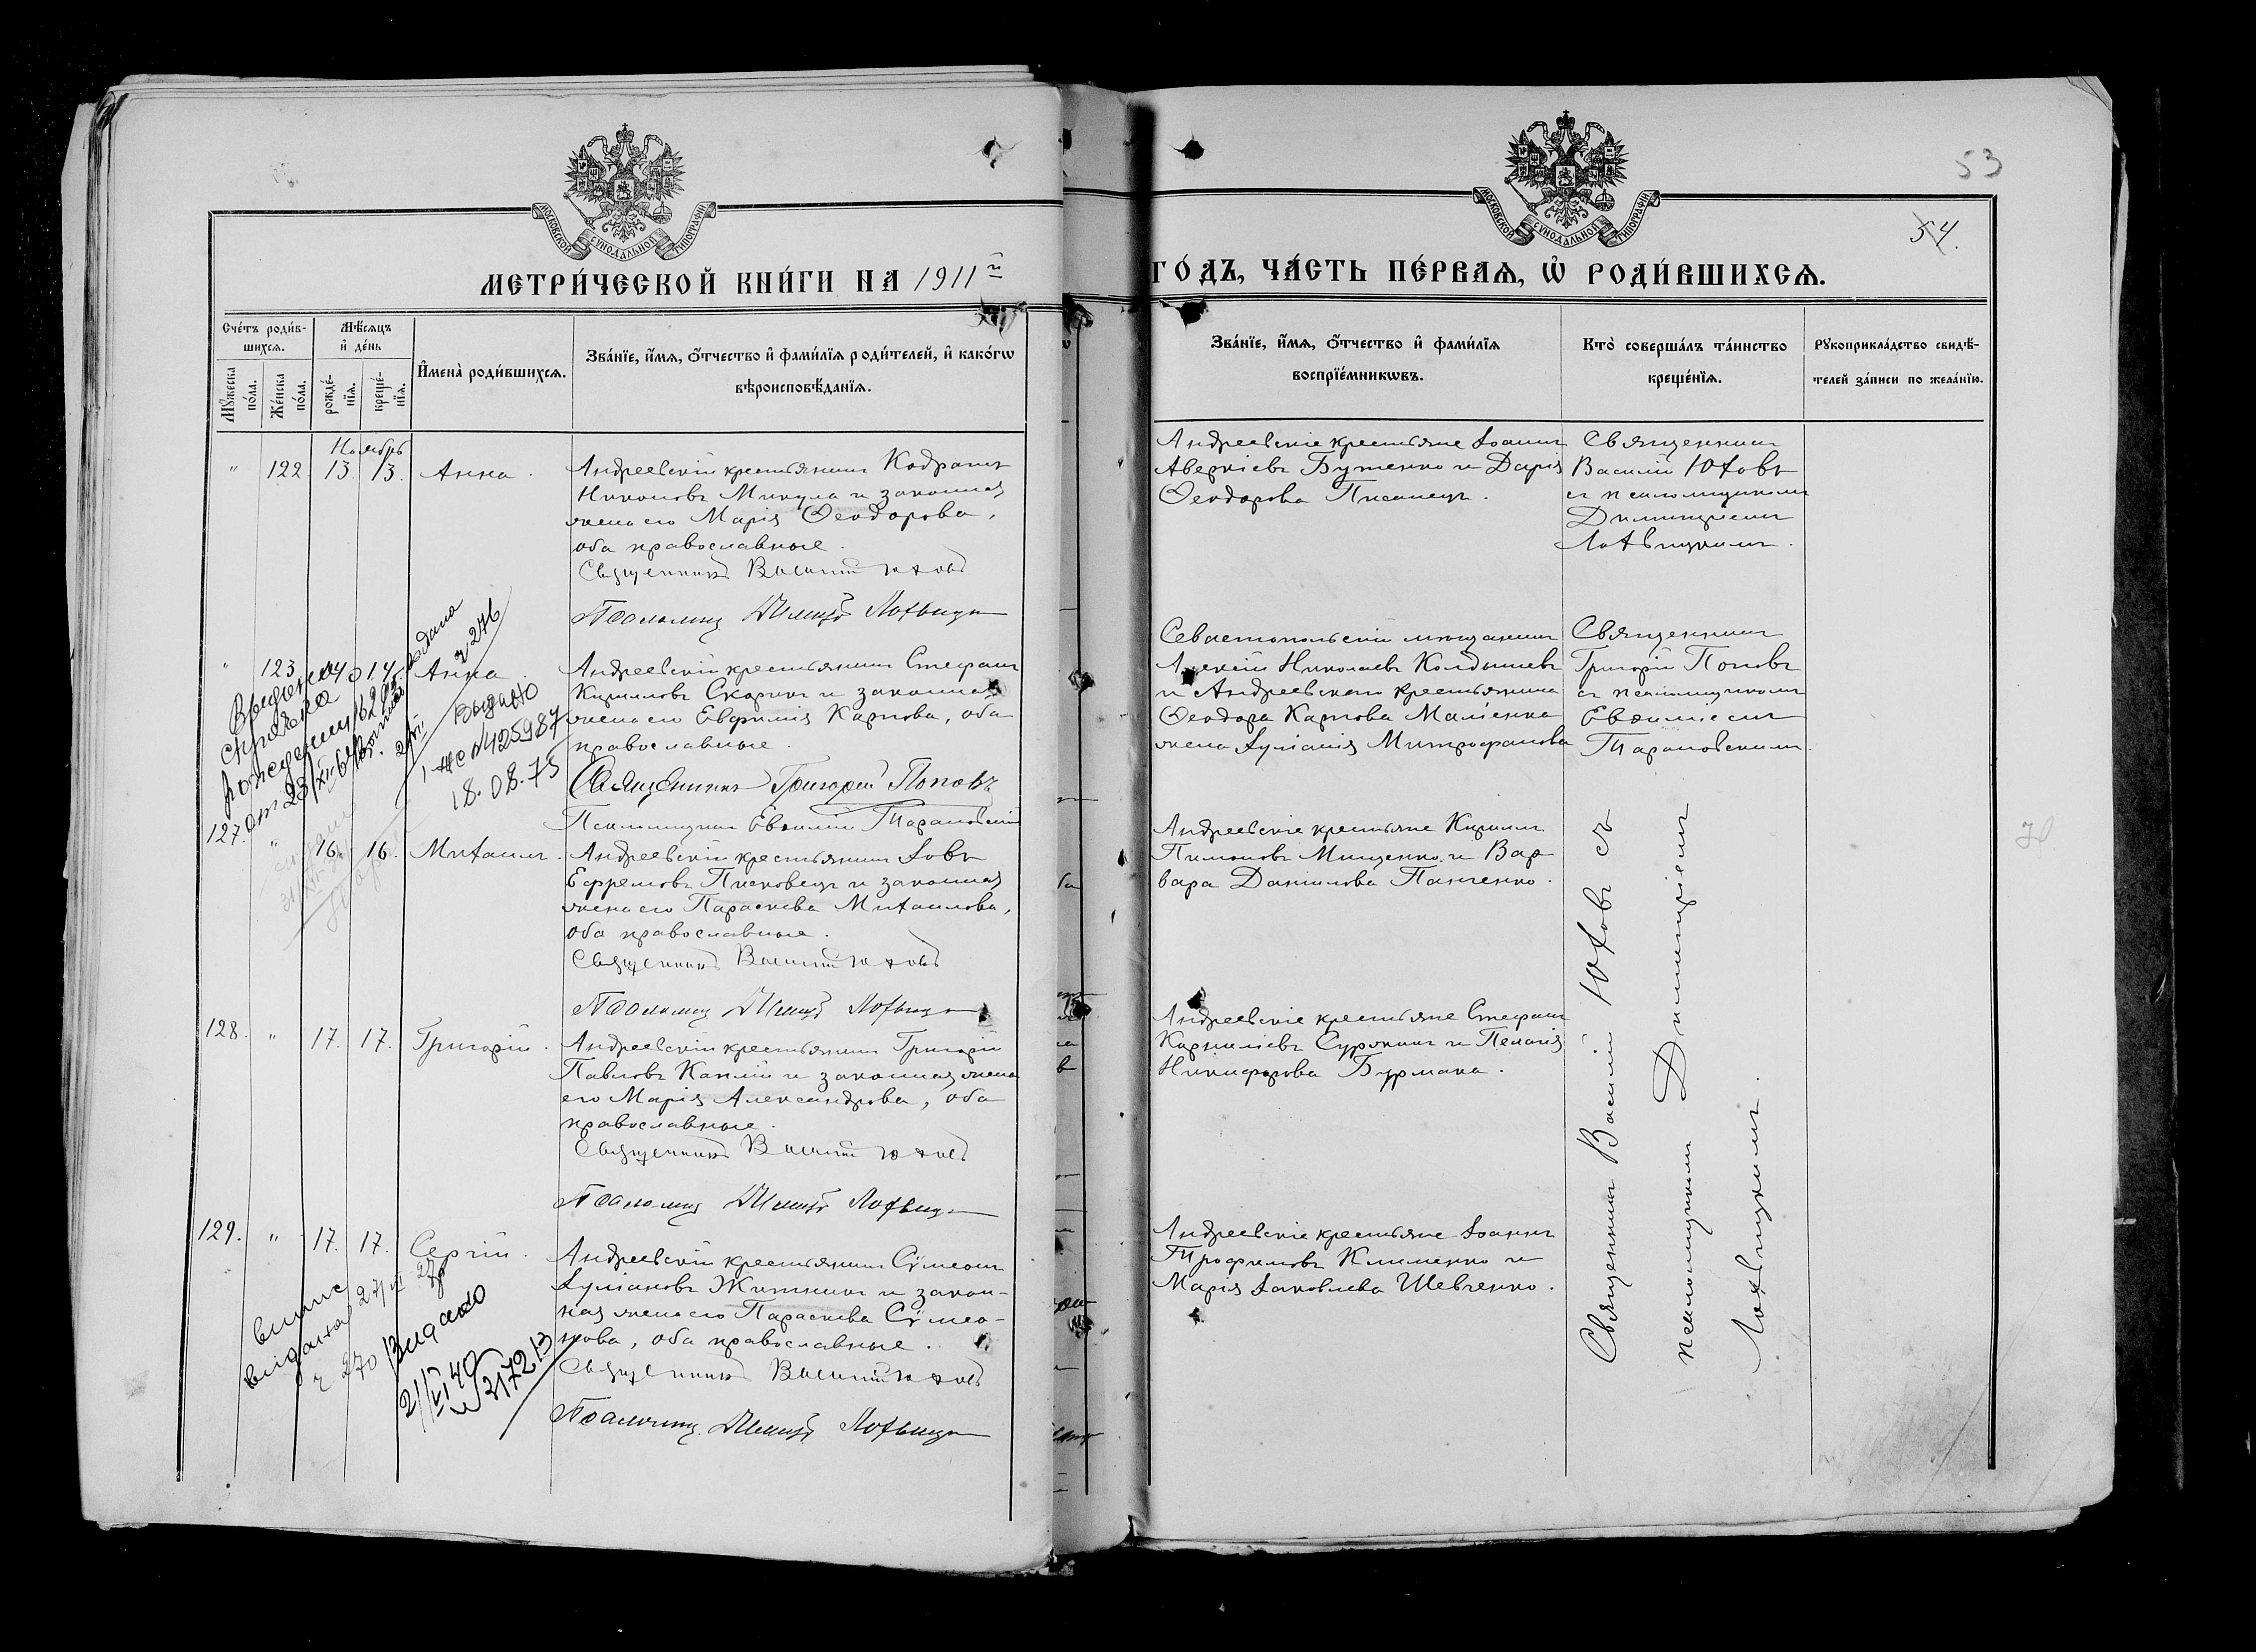 53
54.
МОСКОВСКОЙ СУНОДАЛЬНОЙ ТИПОГРАФІИ
МОСКОВСКОЙ СУНОДАЛЬНОЙ ТИПОГРАФІИ
МЕТРИ́ЧЕСКОЙ КНИ́ГИ НА 1911й ГО́ДЪ, ЧА́СТЬ ПЕ́РВАЯ, Ѡ҆ РОДИ́ВШИХСЯ.
Сче́тъ роди́в-
шихся.
Мѣ́сяцъ
и҆ де́нь
Мꙋ́жеска по́ла.
Же́нска по́ла.
рожде́-
нїя.
креще́-
нїя.
И҆мена̀ роди́вшихся.
Зва́нїе, и҆́мя, ѻ҆́тчество и҆ фами́лїя роди́телей, и҆ како́гѡ
вѣроисповѣ́данїя.
Зва́нїе, и҆́мя, ѻ҆́тчество и҆ фами́лїя
воспрїе́мникѡвъ.
Кто̀ соверша́лъ та́инство
креще́нїя.
Рꙋкоприкла́дство свидѣ́-
телей за́писи по жела́нїю.
Ноябрь
" 122. 13. 13. Анна.
Андреевскій крестьянинъ Кодратъ
Никоновъ Микула и законная
жена его Марія Ѳеодорова,
оба православные.
Священникъ Василій Юховъ
Псаломщ Димитр Лохвицк
Андреевскіе крестьяне Іоаннъ
Аверкіевъ Бутенко и Дарія
Ѳеодорова Писанецъ.
Священникъ
Василій Юховъ
съ псаломщикомъ
Димитріемъ
Лохвицкимъ.
" 123 14 14. Анна.
Андреевскій крестьянинъ Стефанъ
Кириловъ Скорикъ и законная
жена его Евфимія Карпова, оба
православные.
Священникъ Григорій Поповъ
Псаломщикъ Евѳимій Тарановскій
Севастопольскій мѣщанинъ
Алексій Николаевъ Колдышевъ
и Андреевскаго крестьянина
Ѳеодора Карпова Маліенка
жена Іуліанія Митрофанова
Священникъ
Григорій Поповъ
съ псаломщикомъ
Евѳиміемъ
Тарановскимъ.
выдано
N425987
18.08.75
127. " 16. 16. Михаилъ.
Андреевскій крестьянинъ Іовъ
Ефремовъ Писковецъ и законная
жена его Параскева Михаилова,
оба православные.
Священникъ Василій Юховъ
Псаломщ Димитр Лохвицк
Андреевскіе крестьяне Кириллъ
Пимоновъ Мищенко и Вар
вара Данилова Панченко.
128. " 17. 17. Григорій.
Андреевскій крестьянинъ Григорій
Павловъ Каплій и законная жена
его Марія Александрова, оба
православные.
Священникъ Василій Юховъ
Псаломщ Димитр Лохвицк
Андреевскіе крестьяне Стефанъ
Корниліевъ Суржикъ и Пелагія
Никифорова Бурмака.
129. " 17. 17. Сергій.
Андреевскій крестьянинъ Сѵмеонъ
Іуліановъ Житникъ и закон-
ная жена его Параскева Сѵмео-
нова, оба православные.
Священникъ Василій Юховъ
Псаломщ Димитр Лохвицк
Андреевскіе крестьяне Іоаннъ
Трофимовъ Клименко и
Марія Іаковлева Шевченко.
Священникъ Василій Юховъ съ
псаломщикомъ Димитріемъ
Лохвицкимъ.
270
Видано
21/VI 40
N317213